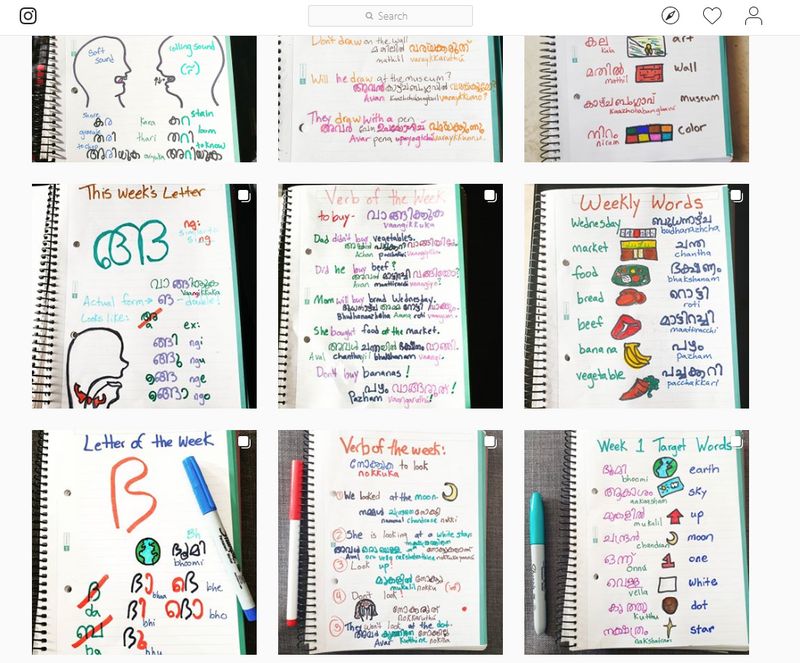 Search
Soft sound
rolling sound
കര
kara
കറ
stain
തരി
thari
തറി
loom
അരിയുക
ariyuka
അറിയുക
to know
Don't draw on the wall
മതിലിൽ വരയ്ക്കരുത്
mathilil varaykkaruthu
Will he draw at the museum?
Avan Kaazhchabanglavil varaykkumo?
They draw with a pen
Avar pena upayogichu varaykkunnu
കല
kala
art
മതിൽ
mathil
wall
കാഴ്ചബംഗ്ലാവ്
Kaazhchabanglavu
museum
നിറം
niram
color
This Week's Letter
ങ
ng:
similar to
sing.
വാങ്ങിക്കുക
Vaangikkuka
Actual form → ങ - double:
Looks like:
അ
a
ex:
ങ്ങി ngi
ങ്ങു ngu
ങ്ങെ nge
ങ്ങൊ ngo
Verb of the Week
to buy - വാങ്ങിക്കുക
vaangikkuka
Dad didn't buy vegetables.
Did he buy beef?
Mom will buy bread Wednesday.
She bought food at the market.
അവൾ ചന്തയിൽ ഭക്ഷണം വാങ്ങി.
Aval chanthayil bhakshanam vaangi.
Don't buy bananas!
പഴം വാങ്ങരുത്!
Pazham vaangaruthu!
Weekly Words
Wednesday ബുധനാഴ്ച
budhanazhcha
market ചന്ത
chantha
food ഭക്ഷണം
bhakshanam
bread റൊട്ടി
roti
beef മാട്ടിറച്ചി
maattiracchi
banana പഴം
pazham
vegetable പച്ചക്കറി
pacchakkari
Letter of the Week
ഭ
Bh
ഭൂമി
bhoomi
ദ
da
ഭാ bhaa
ഭെ bhe
ഭി bhi
ഭൊ bho
ബ
ba
ഭു bhu
Verb of the week:
നോക്കുക to look
nokkuka
① We looked at the moon.
നമ്മൾ ചന്ദ്രനെ നോക്കി
nammal chandrane nokki
② She is looking at a white star
③ Look up!
മുകളിൽ നോക്ക്
mukalil nokku
④ Don't look!
നോക്കരുത്
nokkaruthu
⑤ They won't look at the dot.
Avar kuthine nokkilla
Week 1 Target Words
ഭൂമി
bhoomi
earth
ആകാശം
aakaasham
sky
മുകളിൽ
mukalil
up
ചന്ദ്രൻ
chandran
moon
ഒന്ന്
onnu
one
വെള്ള
vella
white
കുത്ത്
kuthu
dot
നക്ഷത്രം
nakshatram
star